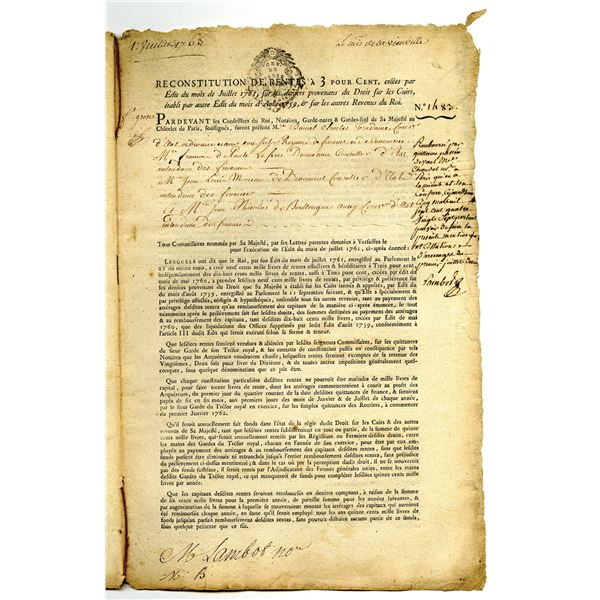 1. Juillet 1763
Le mis de la vieuville
RECONSTITUTION DE RENTES à 3 POUR CENT, créées par
Edit du mois de Juillet 1761, sur les deniers provenans du Droit sur les Cuirs,
établi par autre Edit du mois d'Août 1759, & sur les autres Revenus du Roi.
N.º 1483.
PARDEVANT les Conseillers du Roi, Notaires, Garde-notes & Gardes-scel de Sa Majesté au
Châtelet de Paris, soussignés, furent présens M.re Daniel Charles Trudaine Cons.er
d'Etat ordinaire
intendant des finances
M.re Jean Louis Moreau de Beaumont Conseiller d'Etat
intendant des finances
Et M.re Jean Nicolas de Boullongne aussy Cons.er d'Etat
intendant des finances
Tous Commissaires nommés par Sa Majesté, par ses Lettres patentes données à Versailles le
pour l'exécution de l'Edit du mois de juillet 1761, ci-après énoncé:
LESQUELS ont dit que le Roi, par son Edit du mois de juillet 1761, enregistré au Parlement le
21 du même mois, a créé neuf cents mille livres de rentes effectives & héréditaires à Trois pour cent,
indépendamment des dix-huit cents mille livres de rentes, aussi à Trois pour cent, créées par édit du
mois de mai 1760, à prendre lesdites neuf cents mille livres de rentes, par privilége & préférence sur
les deniers provenans du Droit que Sa Majesté a établi sur les Cuirs tannés & apprêtés, par Edit du
mois d'août 1759, enregistré au Parlement le 11 septembre suivant, & qu'Elle a spécialement &
par privilége affectés, obligés & hypothéqués, ensemble tous ses autres revenus, tant au payement des
arrérages desdites rentes qu'au remboursement des capitaux de la manière ci-après énoncée, le tout
néanmoins après le prélèvement fait sur lesdits droits, des sommes destinées au payement des arrérages
& au remboursement des capitaux, tant desdites dix-huit cents mille livres de rentes, créées par Edit de mai
1760, que des liquidations des Offices supprimés par ledit Edit d'août 1759, conformément à
l'article III dudit Edit qui seront exécuté selon sa forme & teneur.
Que lesdites rentes seroient vendues & aliénées par lesdits Seigneurs Commissaires, sur les quittances
du sieur Garde de son Trésor royal, & les contrats de constitution passés en conséquence par-devant
tels Notaires que les Acquéreurs voudroient choisir, lesquelles rentes seroient exemptes de la retenue des
Vingtièmes, Deux sols pour livre du Dixième, & de toutes autres impositions généralement quelconques,
sous quelque dénomination que ce pût être.
Que chaque constitution particulière desdites rentes ne pourroit être moindre de mille livres de
capital, pour faire trente livres de rente, dont les arrérages commenceroient à courir au profit des
Acquéreurs, du premier jour du quartier courant de la date desdites quittances de finance, & seroient
payés de six en six mois, aux premiers jours des mois de Janvier & de Juillet de chaque année,
par le sieur Garde du Trésor royal en exercice, sur les simples quittances des Rentiers, à commencer
du premier Janvier 1762.
Qu'il seroit annuellement fait fonds dans l'état de la régie dudit Droit sur les Cuirs & des autres
revenus de Sa Majesté, tant que lesdites rentes subsisteroient en tout ou partie, de la somme de quinze
cents mille livres, qui seroit annuellement remise par les Régisseurs ou Fermiers desdits droits, entre
les mains des Gardes du Trésor royal, chacun en l'année de son exercice, pour être par eux
employée au payement des arrérages & au remboursement des capitaux desdites rentes, sans que lesdits
fonds puissent être diminués ni retranchés jusqu'à l'entier remboursement desdites rentes, sans préjudice
du prélèvement ci-dessus mentionné; & dans le cas où par la perception dudit droit, il ne se trouveroit
pas des fonds suffisans, il seroit remis par l'Adjudicataire des Fermes générales unies, entre les mains
des Gardes du Trésor royal, ce qui manqueroit de fonds pour compléter lesdites quinze cents mille
livres par année.
Que les capitaux desdites rentes seroient remboursés en deniers comptans, à raison de la somme
de six cents mille livres pour la première année, de pareille somme pour les années suivantes, &
par augmentation de la somme à laquelle se trouveroient monter les arrérages des capitaux qui auroient
été remboursés, en sorte qu'il seroit employé tous les ans quinze cents mille livres de
fonds jusqu'au parfait remboursement desdites rentes, sans pouvoir distraire aucune partie de ce fonds,
sous quelque prétexte que ce fût.
Lambot
M Lambot nore
N. B.